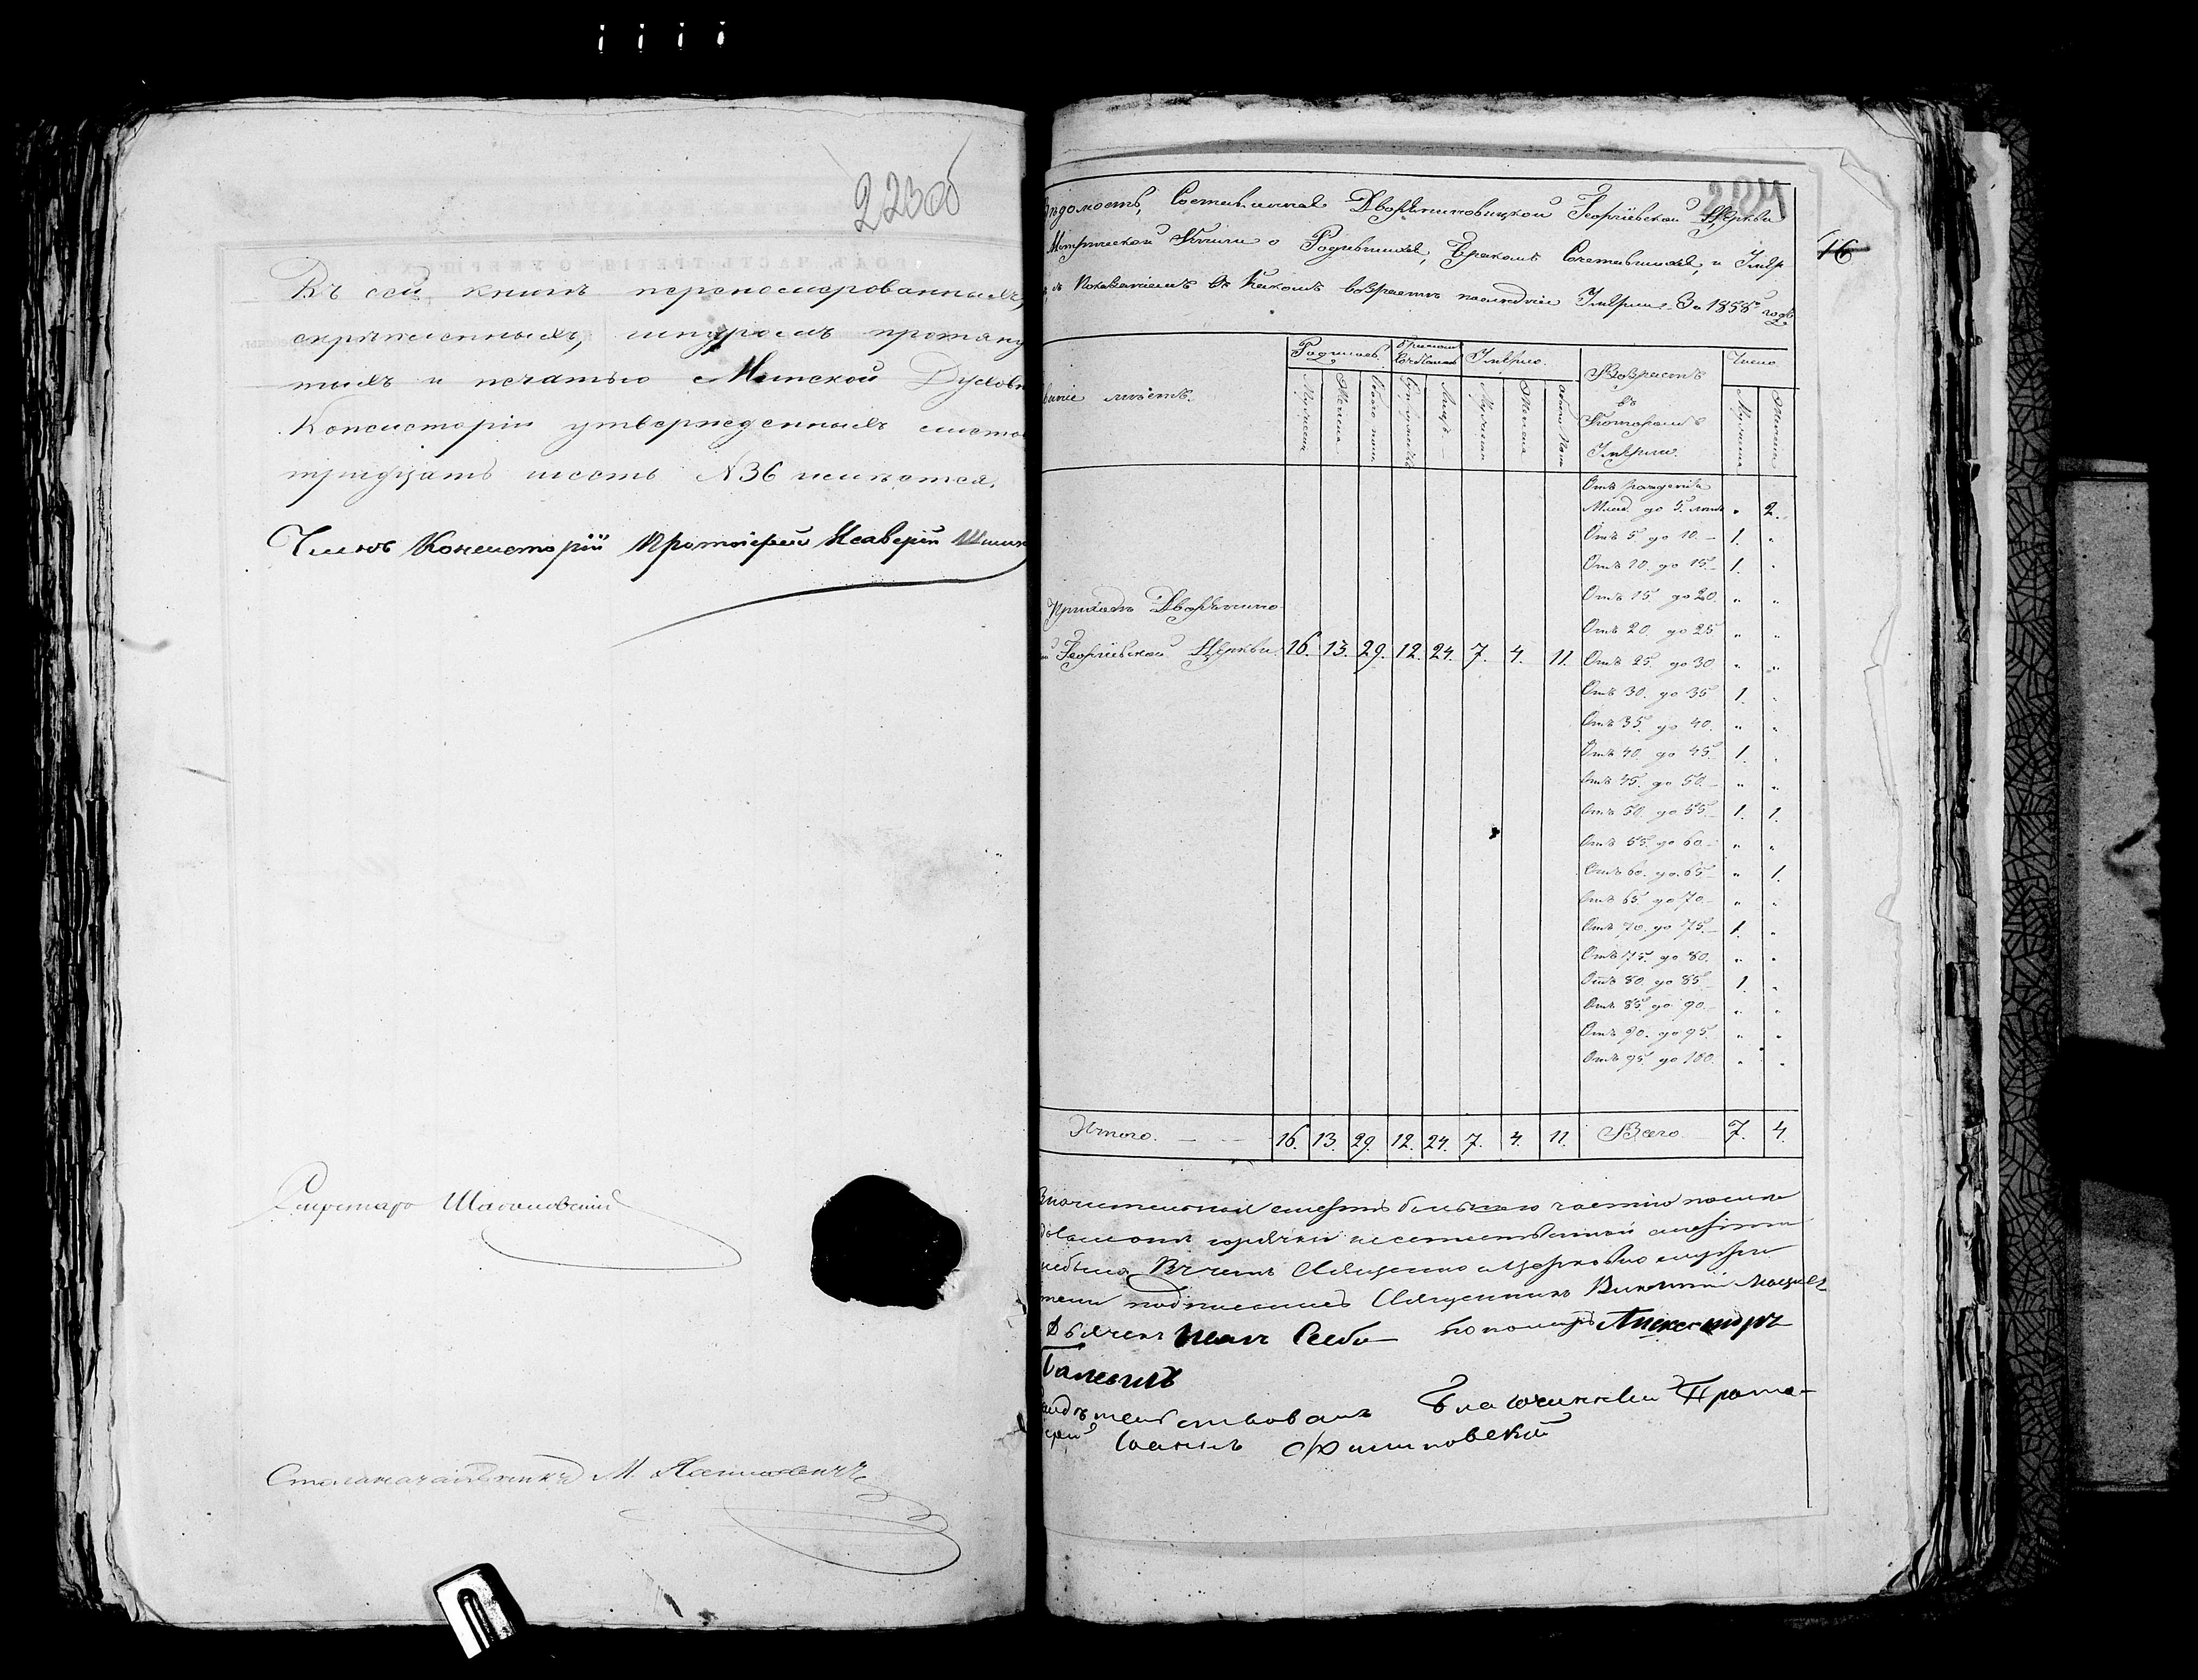 223об
Въ сей книгѣ перенумерованныхъ,
скрѣпленныхъ, шнуромъ протяну
тыхъ и печатью Минской Духовн
Консисторіи утвержденныхъ листо
тридцать шесть №36 имѣется.
Членъ Консисторіи Протоіерей Ксаверій
Секретарь
Столоначальникъ М.
224
16
Вѣдомость, Составленная Дворяниновицкой Георгіевской Церкви
Метрической Книги о Родившихся, Бракомъ Сочетавшихся, и Умер
съ Показаніемъ въ Какомъ возрастѣ послѣдніе Умерли. За 1858 годъ
ваніе мѣстъ.
Родилось.
Бракомъ Сочетались
Умерло.
Возрастъ въ Которомъ Умерли.
Число
Мужеска
Женска
Обоего пола
Супружествъ
Лицъ
Мужеска
Женска
Обоего Пола
Мужеска
Женска
Отъ рожденія
Млад. до 5. лѣтъ " 2.
Отъ 5 до 10. 1. "
Отъ 10. до 15. 1. "
Отъ 15. до 20. " "
Отъ 20. до 25 " "
Приходъ Дворянино
Георгіевской Церкви. 16. 13. 29. 12. 24. 7. 4. 11. Отъ 25. до 30 " "
Отъ 30. до 35 1. "
Отъ 35. до 40. " "
Отъ 40. до 45. 1. "
Отъ 45. до 50. " "
Отъ 50. до 55. 1. 1.
Отъ 55. до 60. " "
Отъ 60. до 65. " 1.
Отъ 65. до 70. " "
Отъ 70. до 75. 1. "
Отъ 75. до 80. " "
Отъ 80. до 85. 1. "
Отъ 85. до 90. " "
Отъ 90. до 95. " "
Отъ 95. до 100. " "
Итого. 16. 13. 29. 12. 24. 7. 4. 11. Всего 7. 4.
смерть большею частію послѣ
довала отъ горячки неестественной смерти
небыло Въ чемъ Священно церковно служи
тели подписались Священникъ Викентій
Дьячекъ Иванъ пономарь Александръ
Свидѣтельствовалъ Благочинный Прото-
іерей Іоаннъ